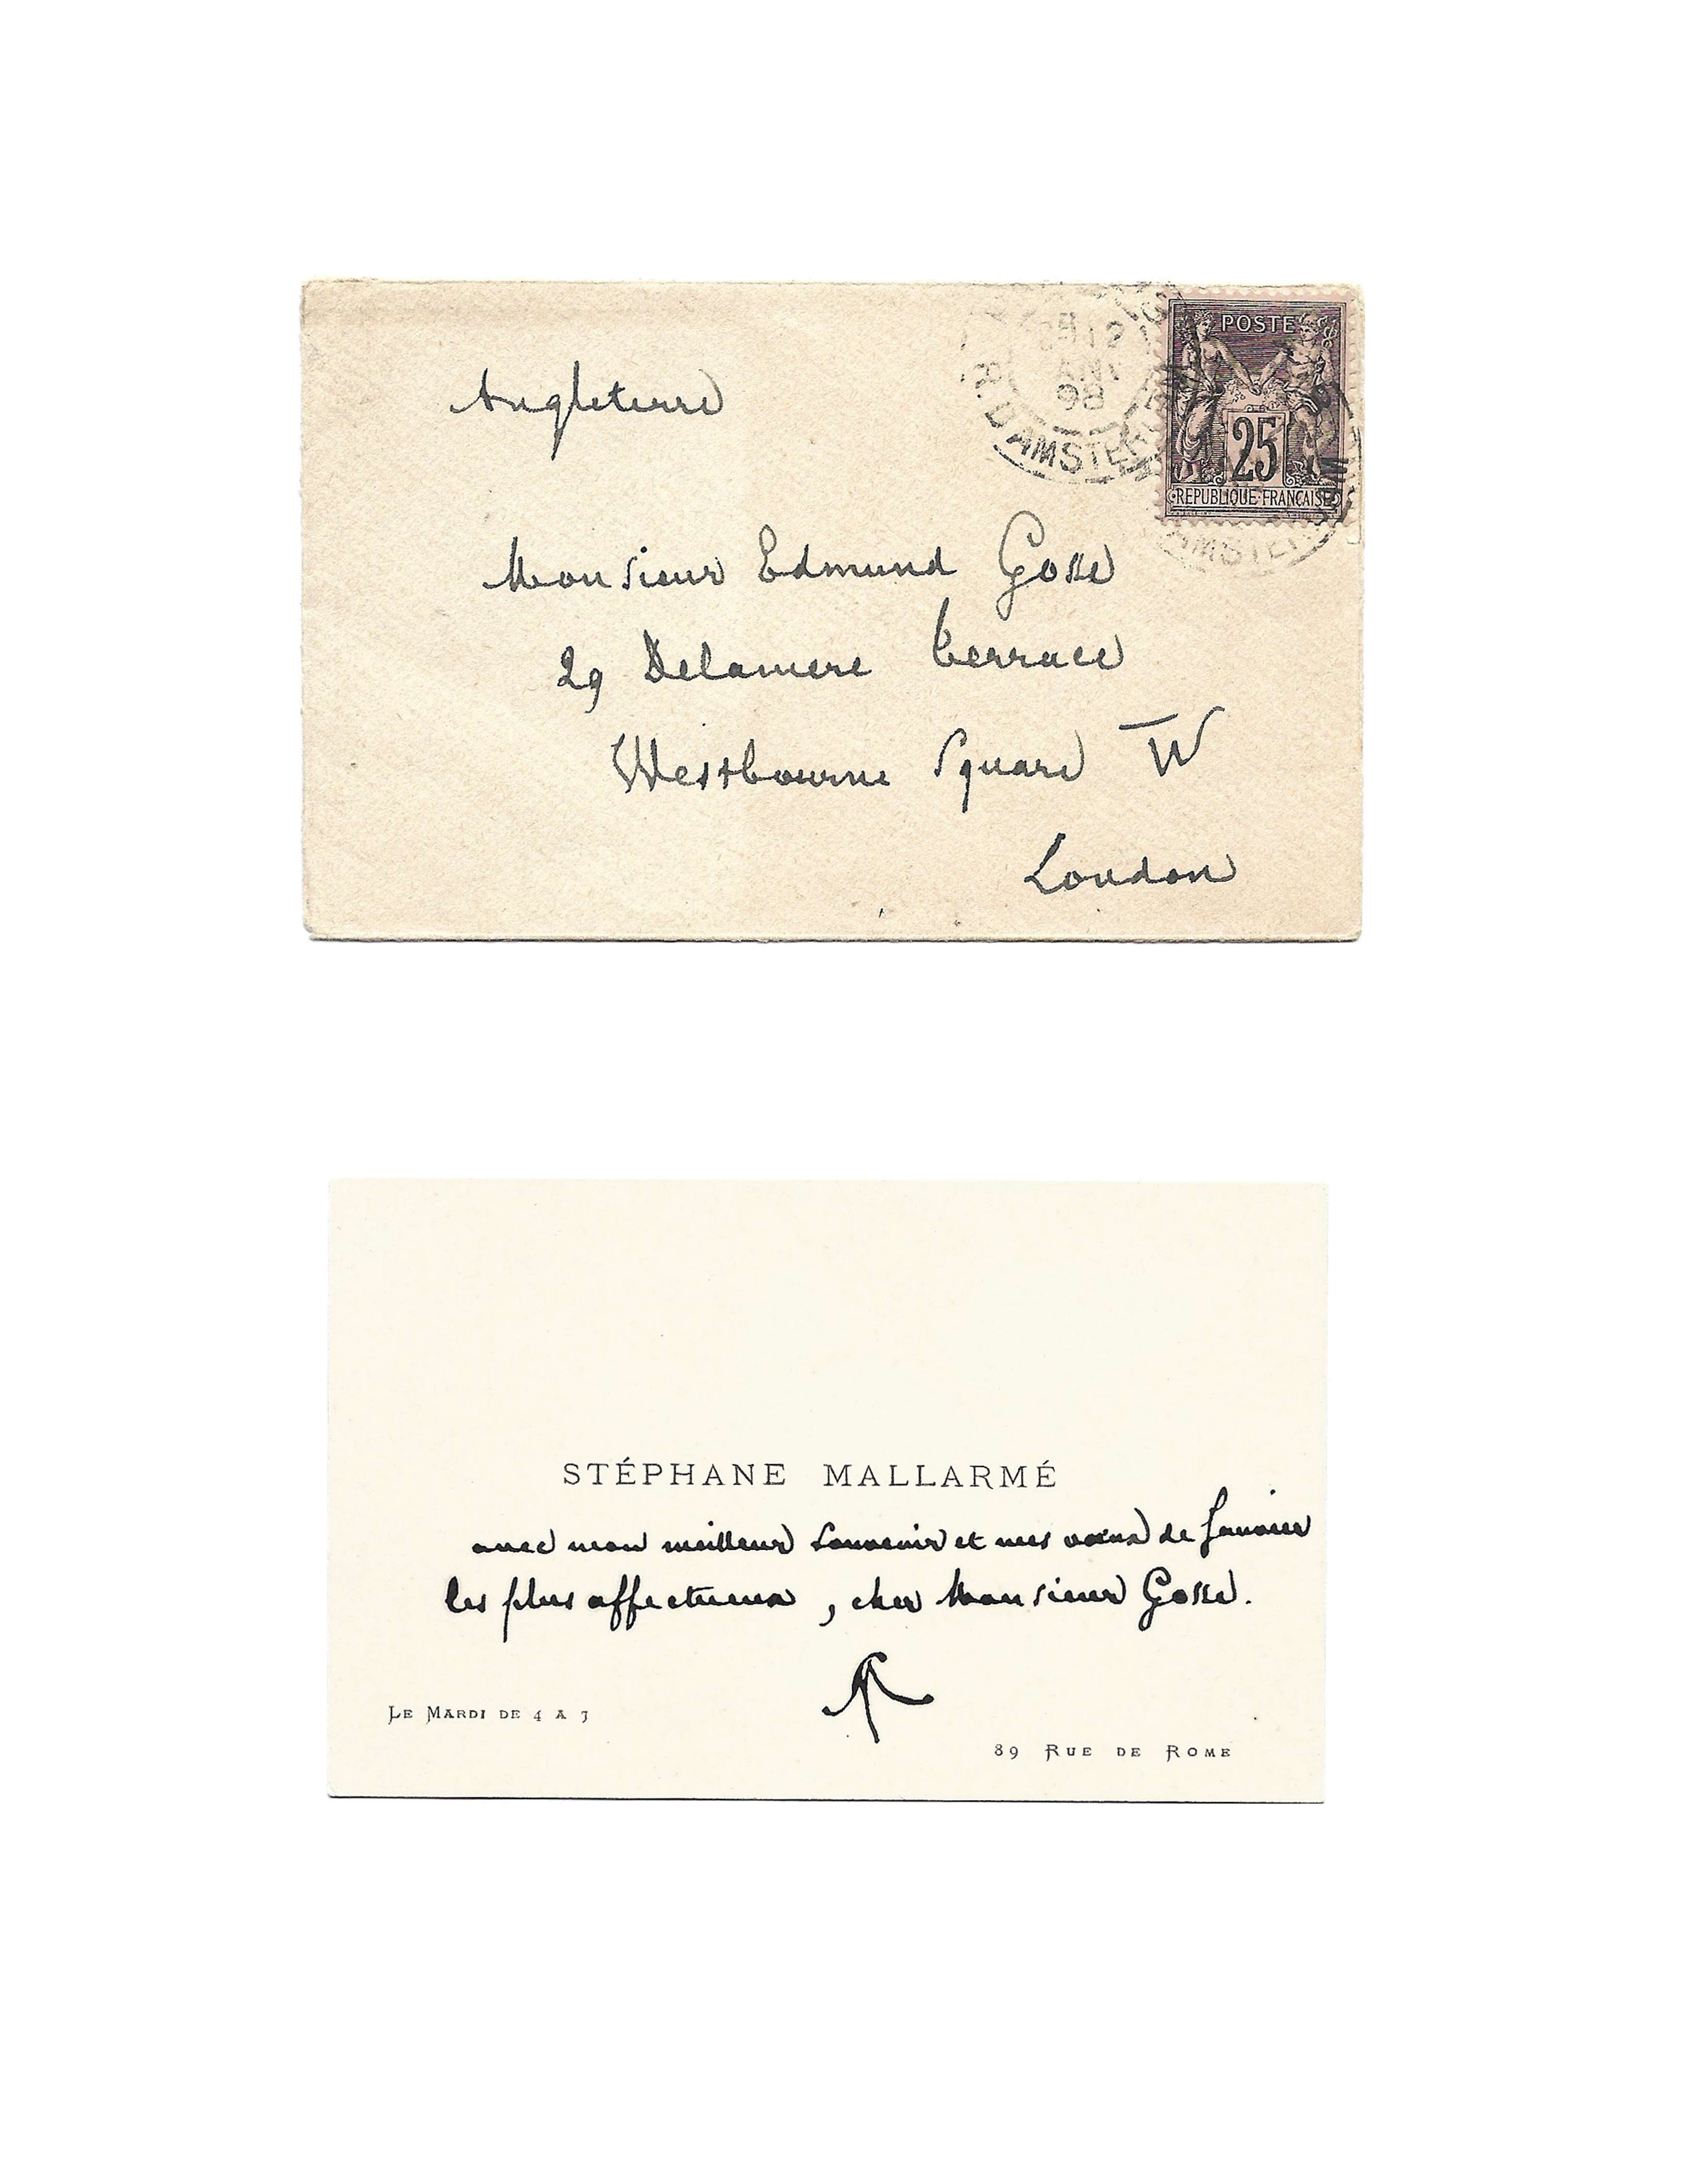 Angleterre
POSTES
25
REPUBLIQUE FRANÇAISE
98
R. D'AMSTERDAM
Monsieur Edmund Gosse
29 Delamere Terrace
Westbourne Square W
London
STÉPHANE MALLARMÉ
avec mon meilleur souvenir et mes vœux de Janvier
les plus affectueux, cher Monsieur Gosse.
LE MARDI DE 4 A 7
89 RUE DE ROME